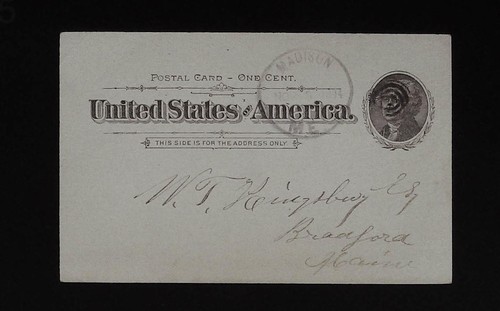 MADISON
ME.
POSTAL CARD - ONE CENT.
United States of America.
THIS SIDE IS FOR THE ADDRESS ONLY.
W. T. Kingsbury Esq
Bradford
Maine